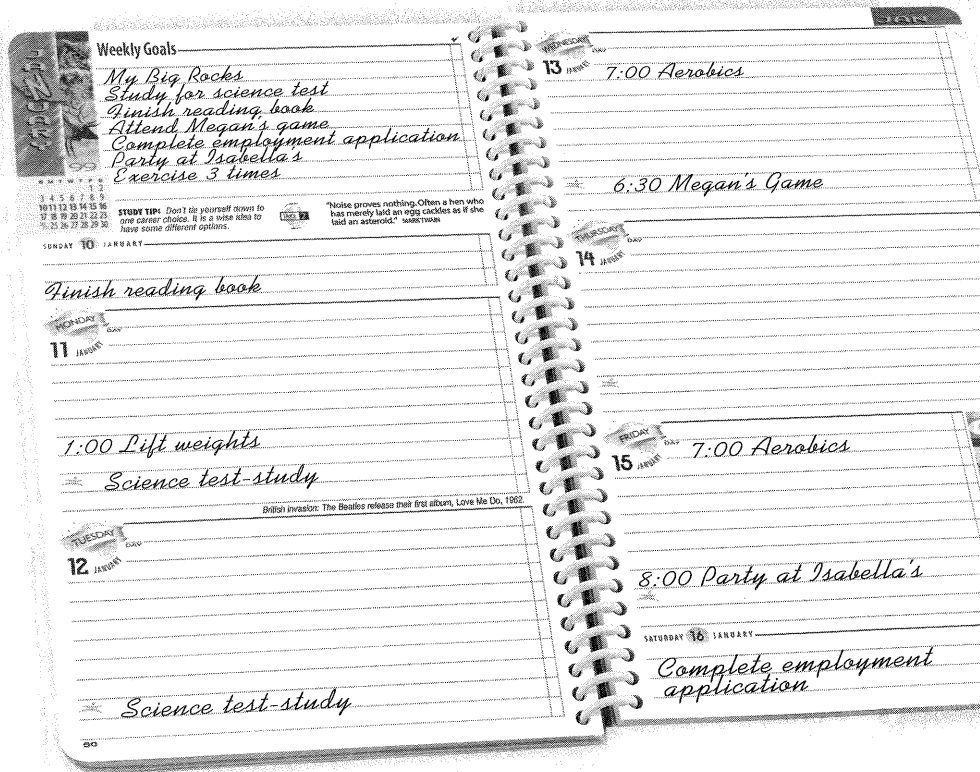 Weekly Goals
My Big Rocks
Study for science test
Finish reading book
Attend Megan's game
Complete employment application
Party at Isabella's
Exercise 3 times
99
S M T W T F S
1 2
3 4 5 6 7 8 9
10 11 12 13 14 15 16
17 18 19 20 21 22 23
25 26 27 28 29 30
STUDY TIP: Don't tie yourself down to
one career choice. It is a wise idea to
have some different options.
"Noise proves nothing. Often a hen who
has merely laid an egg cackles as if she
laid an asteroid." MARK TWAIN
SUNDAY 10 JANUARY
Finish reading book
MONDAY
DAY
11 JANUARY
1:00 Lift weights
Science test-study
British invasion: The Beatles release their first album, Love Me Do, 1962.
TUESDAY
DAY
12 JANUARY
Science test-study
50
JAN
WEDNESDAY
DAY
13 JANUARY
7:00 Aerobics
6:30 Megan's Game
THURSDAY
DAY
14 JANUARY
FRIDAY
DAY
15 JANUARY
7:00 Aerobics
8:00 Party at Isabella's
SATURDAY 16 JANUARY
Complete employment
application